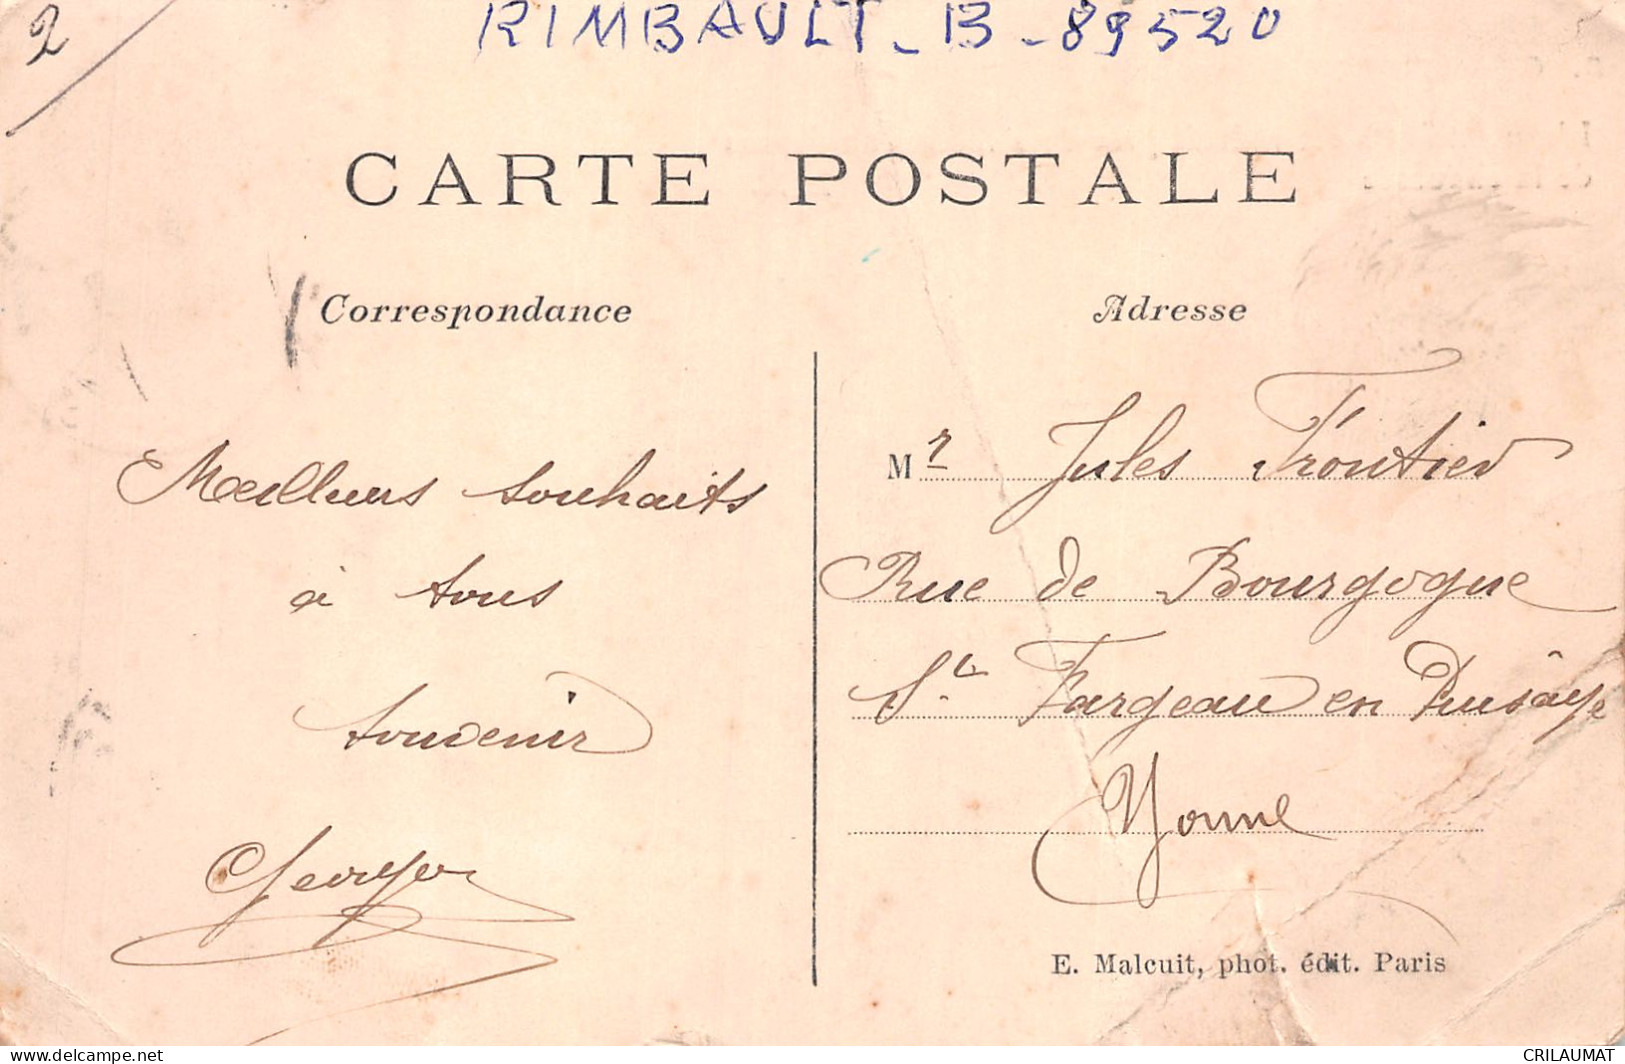 2
RIMBAULT_B_89520
CARTE POSTALE
Correspondance
Adresse
Meilleurs souhaits
à tous
souvenir
Georges
Mr Jules Frontier
Rue de Bourgogne
St. Fargeau en Puisaye
Yonne
E. Malcuit, phot. édit. Paris
www.delcampe.net
CRILAUMAT